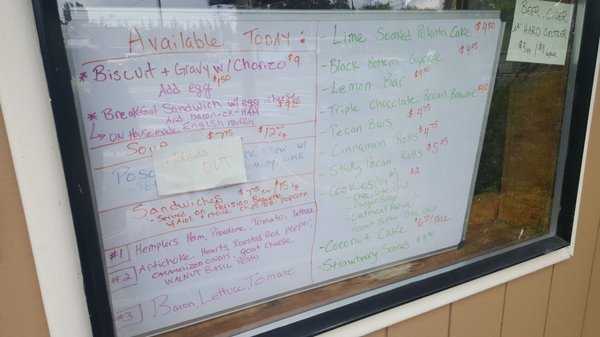 Available Today:
* Biscuit + Gravy w/ Chorizo $9
Add egg $1.50
* Breakfast Sandwich w/ egg, cheese $9.50
Add bacon-or-HAM
↳ ON Housemade English muffin
Soup $7.95 $12
SOLD OUT
Sandwiches
- Served on Parisian Baguette
w/ Dict of choice chips or popcorn
#1 Hemplers Ham, Provolone, Tomato, Lettuce
#2 Artichoke Hearts, Roasted Red pepper,
Caramelized onions, goat cheese
WALNUT BASIL PESTO
#3 Bacon, Lettuce, Tomato
- Lime Soaked Polenta Cake $4.50
- Black Bottom Cupcake $4.75
- Lemon Bar $4.50
- Triple Chocolate Pecan Brownie
- Pecan Bars $4.75
- Cinnamon Rolls $4.75
- Sticky Pecan Rolls $5.25
- Cookies $2
Ginger Snap
Oatmeal Raisin
Peanut Butter Choc Chip
- Coconut Cake $6.50/slice
- Strawberry Scones
BEER, CIDER
or HARD SELTZER